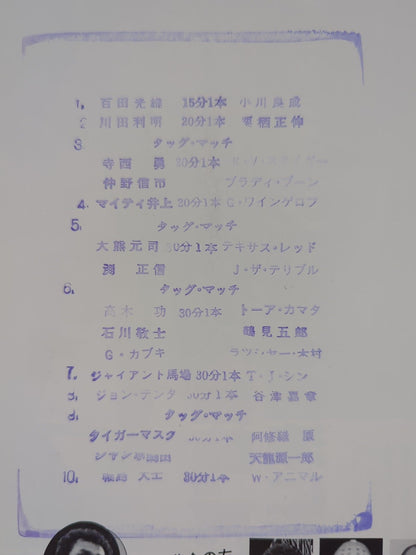 1. 百田光雄 15分1本 小川良成
2 川田利明 20分1本 栗栖正伸
3. タッグ・マッチ
寺西 勇 20分1本
仲野信市 ブラディ・ブーン
4. マイティ井上 20分1本 G・ワインゲロフ
5. タッグ・マッチ
大熊元司 30分1本 テキサス・レッド
渕 正信 J・ザ・テリブル
6. タッグ・マッチ
高木 功 30分1本 トーア・カマタ
石川敬士 鶴見五郎
G・カブキ ラッシャー・木村
7. ジャイアント馬場 30分1本 T・J・シン
8. ジョン・テンタ 30分1本 谷津嘉章
9. タッグ・マッチ
タイガーマスク 30分1本 阿修羅 原
天龍源一郎
10. 輪島 大士 30分1本 W・アニマル